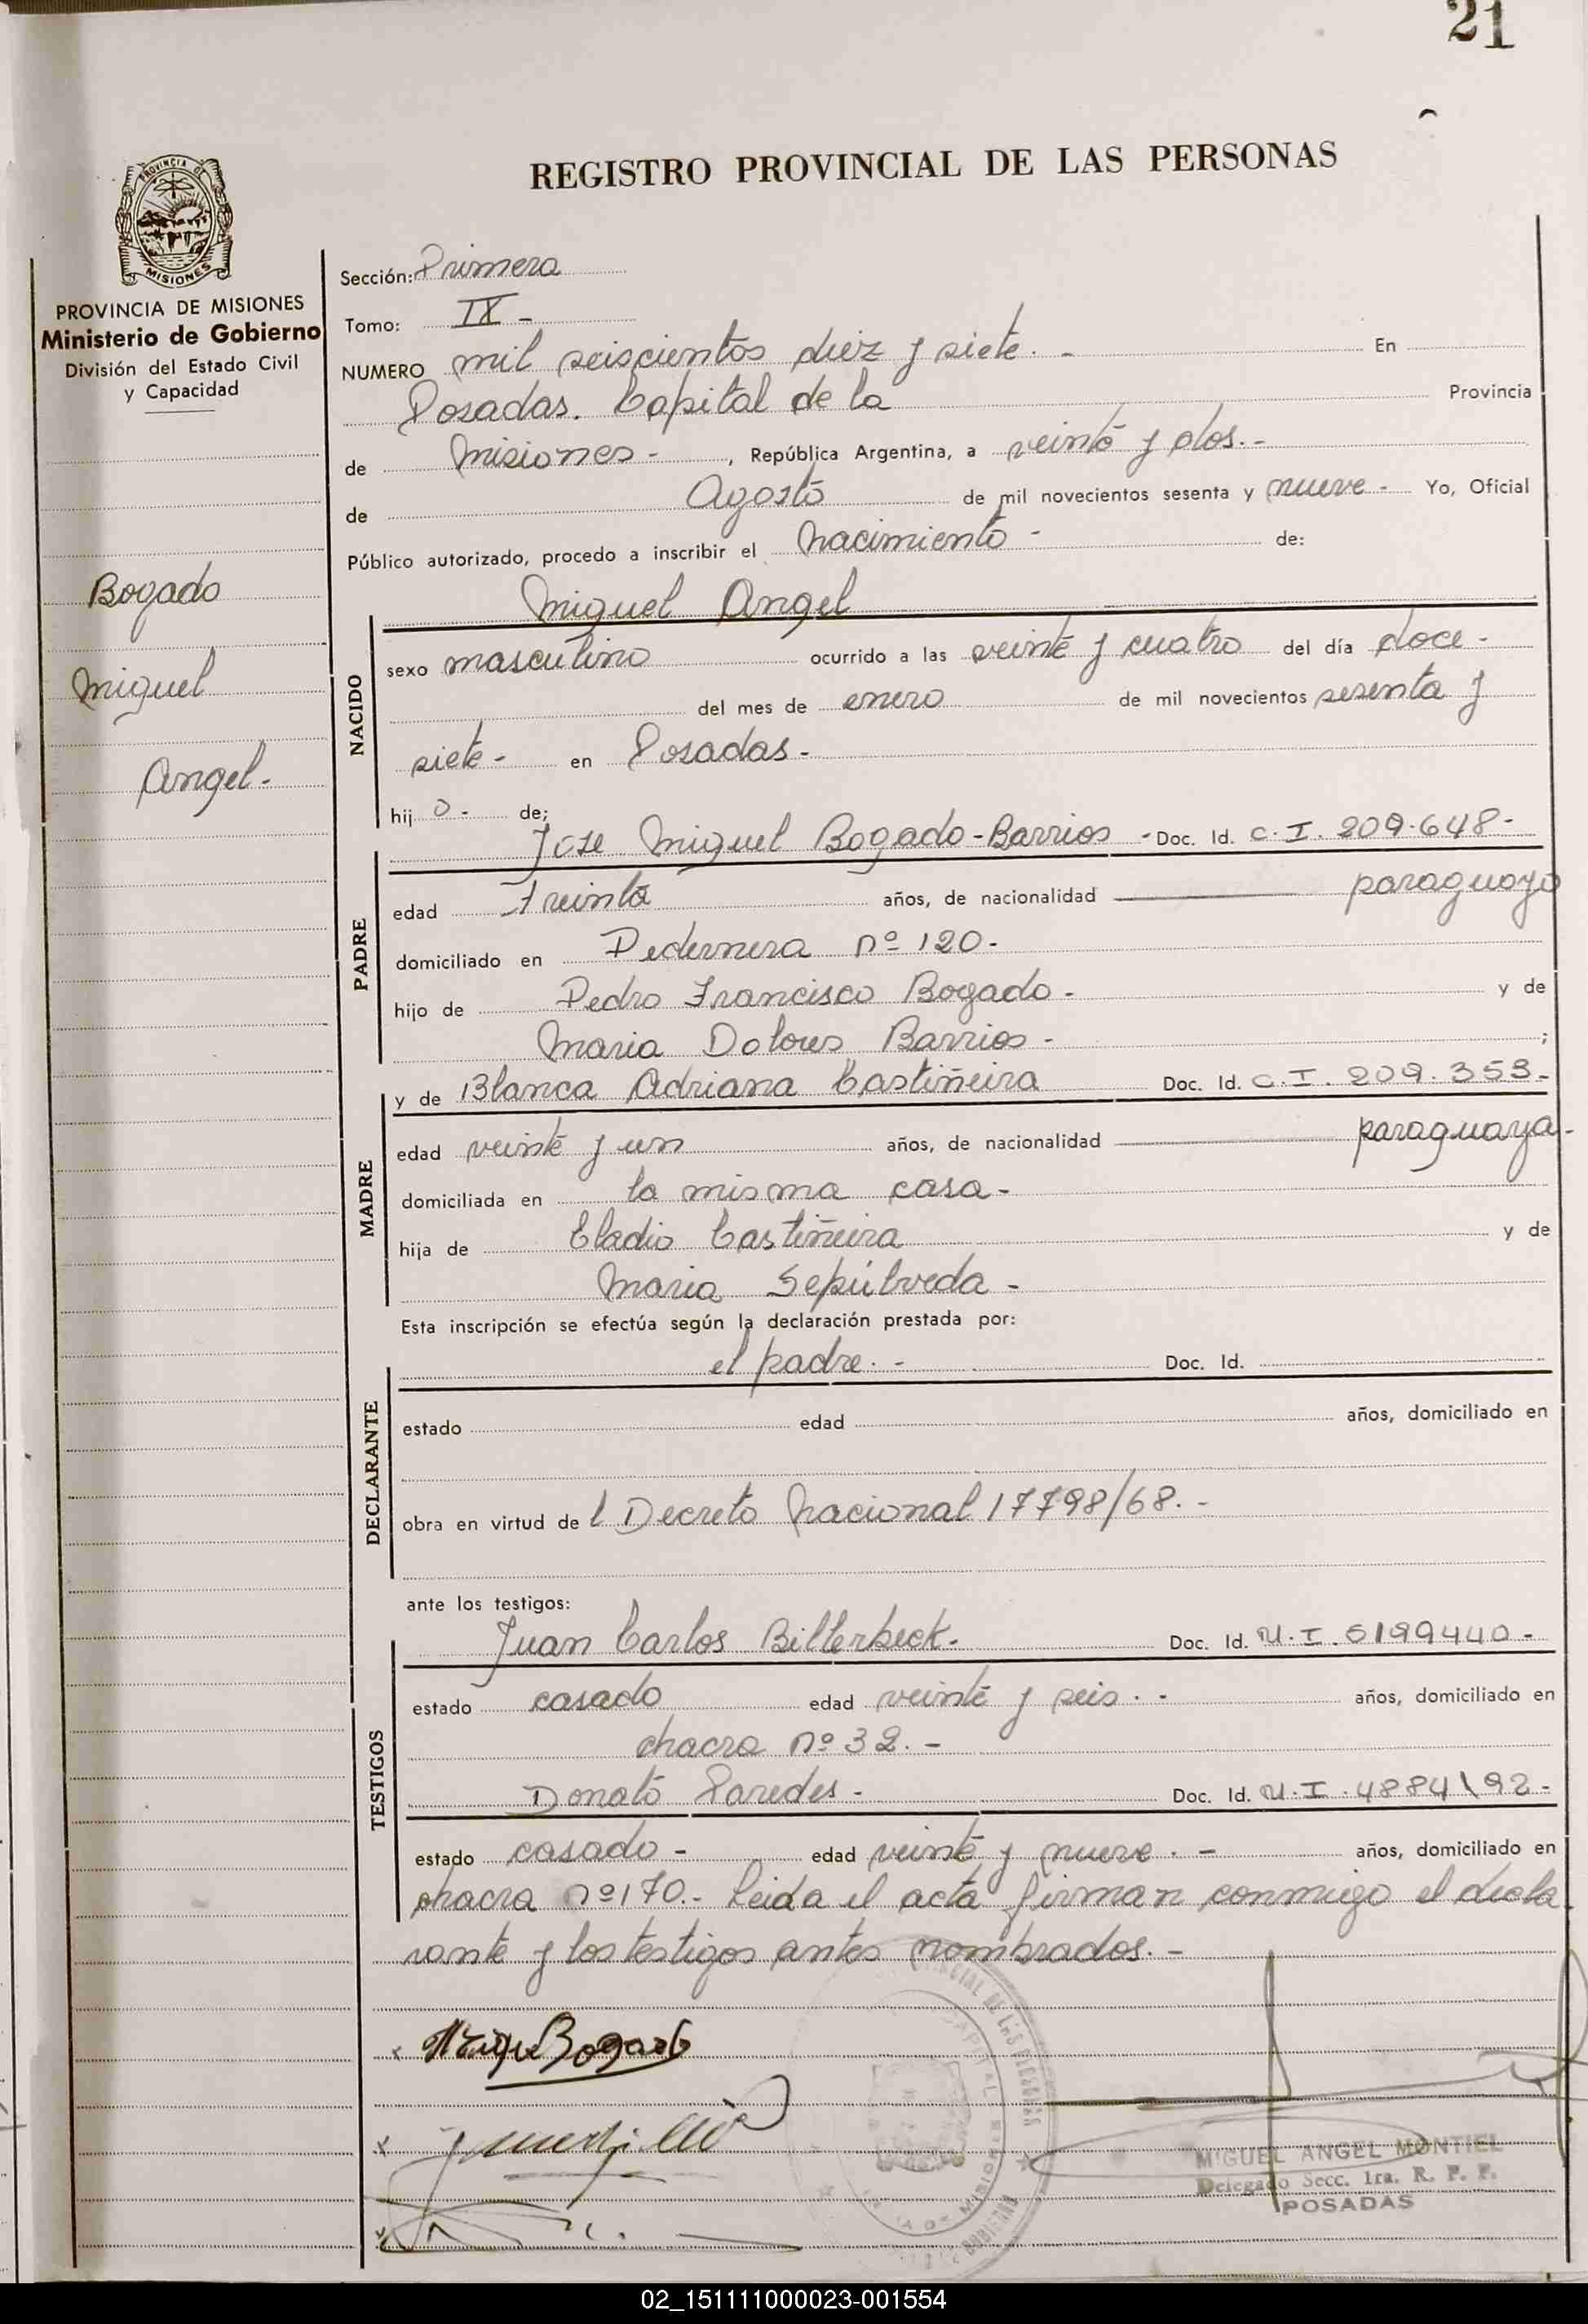 21
REGISTRO PROVINCIAL DE LAS PERSONAS
PROVINCIA DE MISIONES
PROVINCIA DE MISIONES
Ministerio de Gobierno
División del Estado Civil
y Capacidad
Bogado
Miguel
Angel.-
Sección: Primera
Tomo: IX -
NUMERO mil seiscientos diez y siete. - En
Posadas. Capital de la Provincia
de Misiones - , República Argentina, a veinte y dos.-
de Agosto de mil novecientos sesenta y nueve - Yo, Oficial
Público autorizado, procedo a inscribir el Nacimiento - de:
Miguel Angel
NACIDO
sexo masculino ocurrido a las veinte y cuatro del día doce -
del mes de enero de mil novecientos sesenta y
siete - en Posadas -
hij o - de;
José Miguel Bogado-Barrios - Doc. Id. C. I. 209.648-
PADRE
edad Treinta años, de nacionalidad paraguayo
domiciliado en Pedernera nº 120-
hijo de Pedro Francisco Bogado - y de
Maria Dolores Barrios - ;
y de Blanca Adriana Castiñeira Doc. Id. C. I. 209.353-
MADRE
edad veinte y un años, de nacionalidad paraguaya-
domiciliada en la misma casa -
hija de Eladio Castiñeira y de
Maria Sepúlveda -
Esta inscripción se efectúa según la declaración prestada por:
el padre. - Doc. Id.
DECLARANTE
estado edad años, domiciliado en
obra en virtud de l Decreto Nacional 17798/68. -
ante los testigos:
Juan Carlos Billerbeck. Doc. Id. M. I. 6199440 -
TESTIGOS
estado casado edad veinte y seis. - años, domiciliado en
chacra nº 32. -
Donato Paredes - Doc. Id. M. I. 4884192-
estado casado - edad veinte y nueve. - años, domiciliado en
chacra nº 170.- Leida el acta firman conmigo el decla
rante y los testigos antes nombrados. -
Bogado
MIGUEL ANGEL MONTIEL
Delegado Secc. 1ra. R. P. P.
POSADAS
02_151111000023-001554